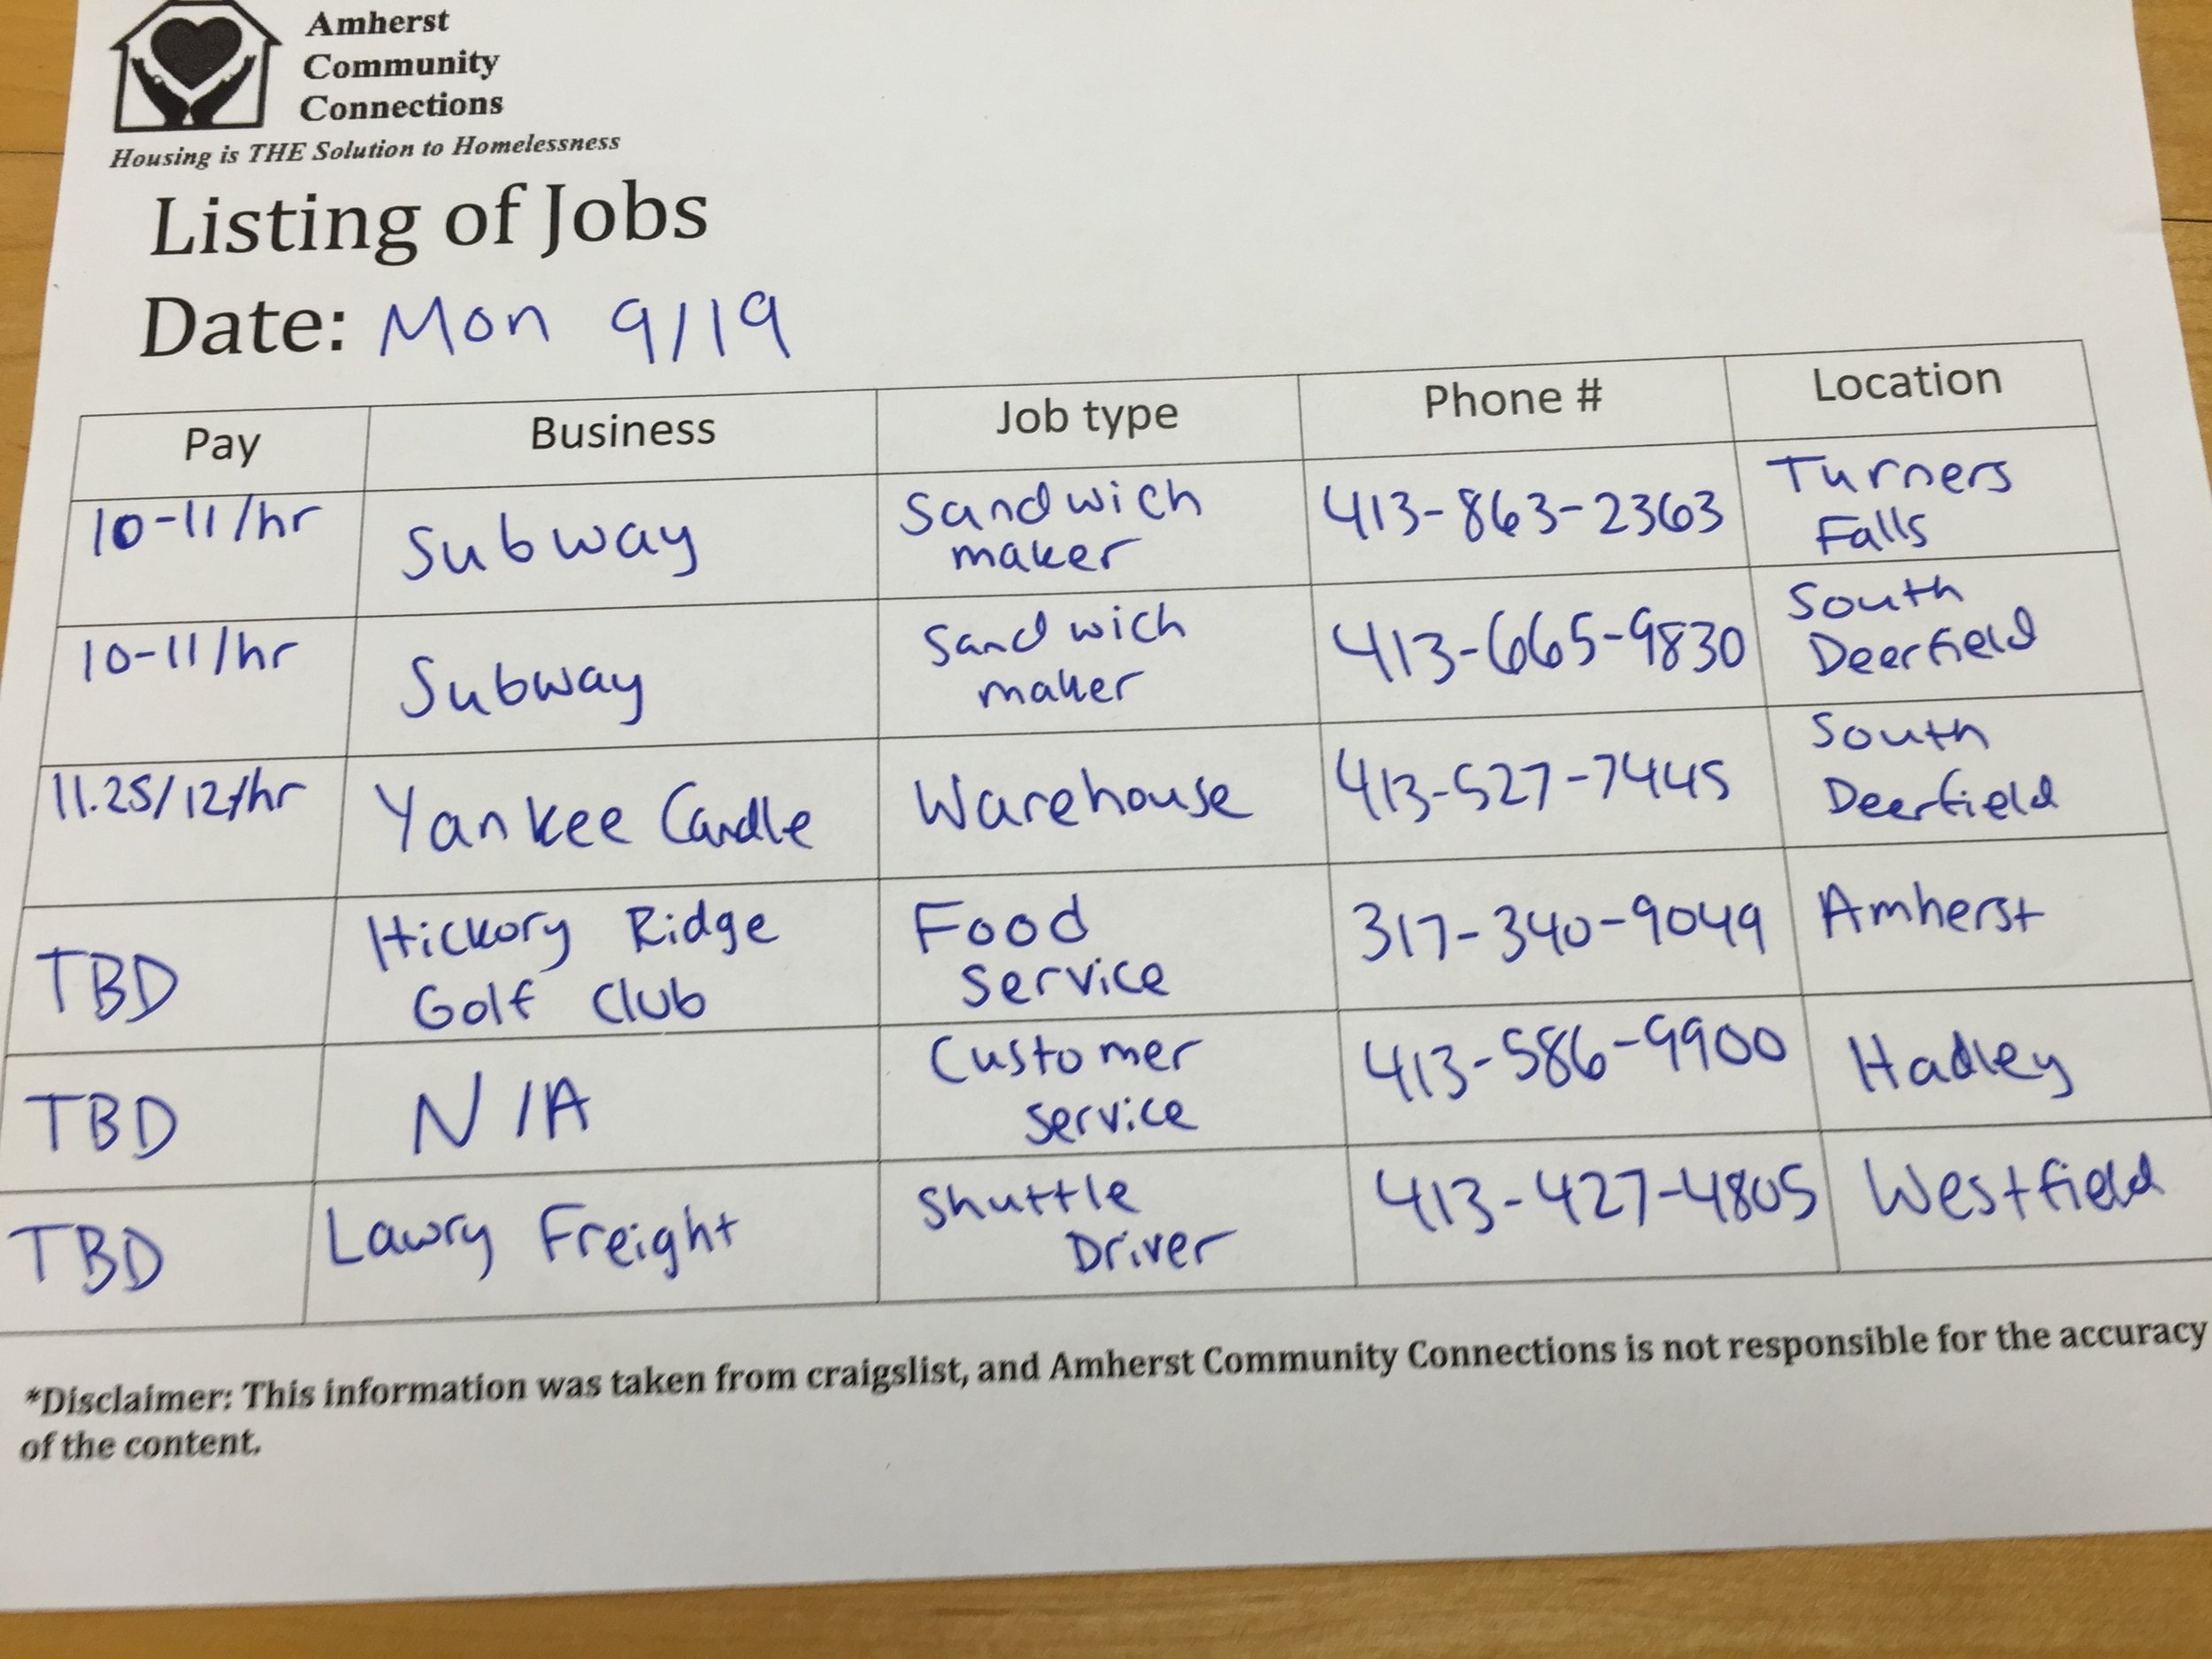 Amherst
Community
Connections
Housing is THE Solution to Homelessness
Listing of Jobs
Date: Mon 9/19
Pay Business Job type Phone # Location
10-11/hr Subway Sandwich maker 413-863-2363 Turners Falls
10-11/hr Subway Sandwich maker 413-665-9830 South Deerfield
11.25/12/hr Yankee Candle Warehouse 413-527-7445 South Deerfield
TBD Hickory Ridge Golf Club Food service 317-340-9049 Amherst
TBD N/A Customer service 413-586-9900 Hadley
TBD Lawry Freight Shuttle Driver 413-427-4805 Westfield
*Disclaimer: This information was taken from craigslist, and Amherst Community Connections is not responsible for the accuracy
of the content.